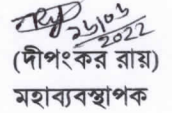 ২১/০৩
2022
(দীপংকর রায়)
মহাব্যবস্থাপক